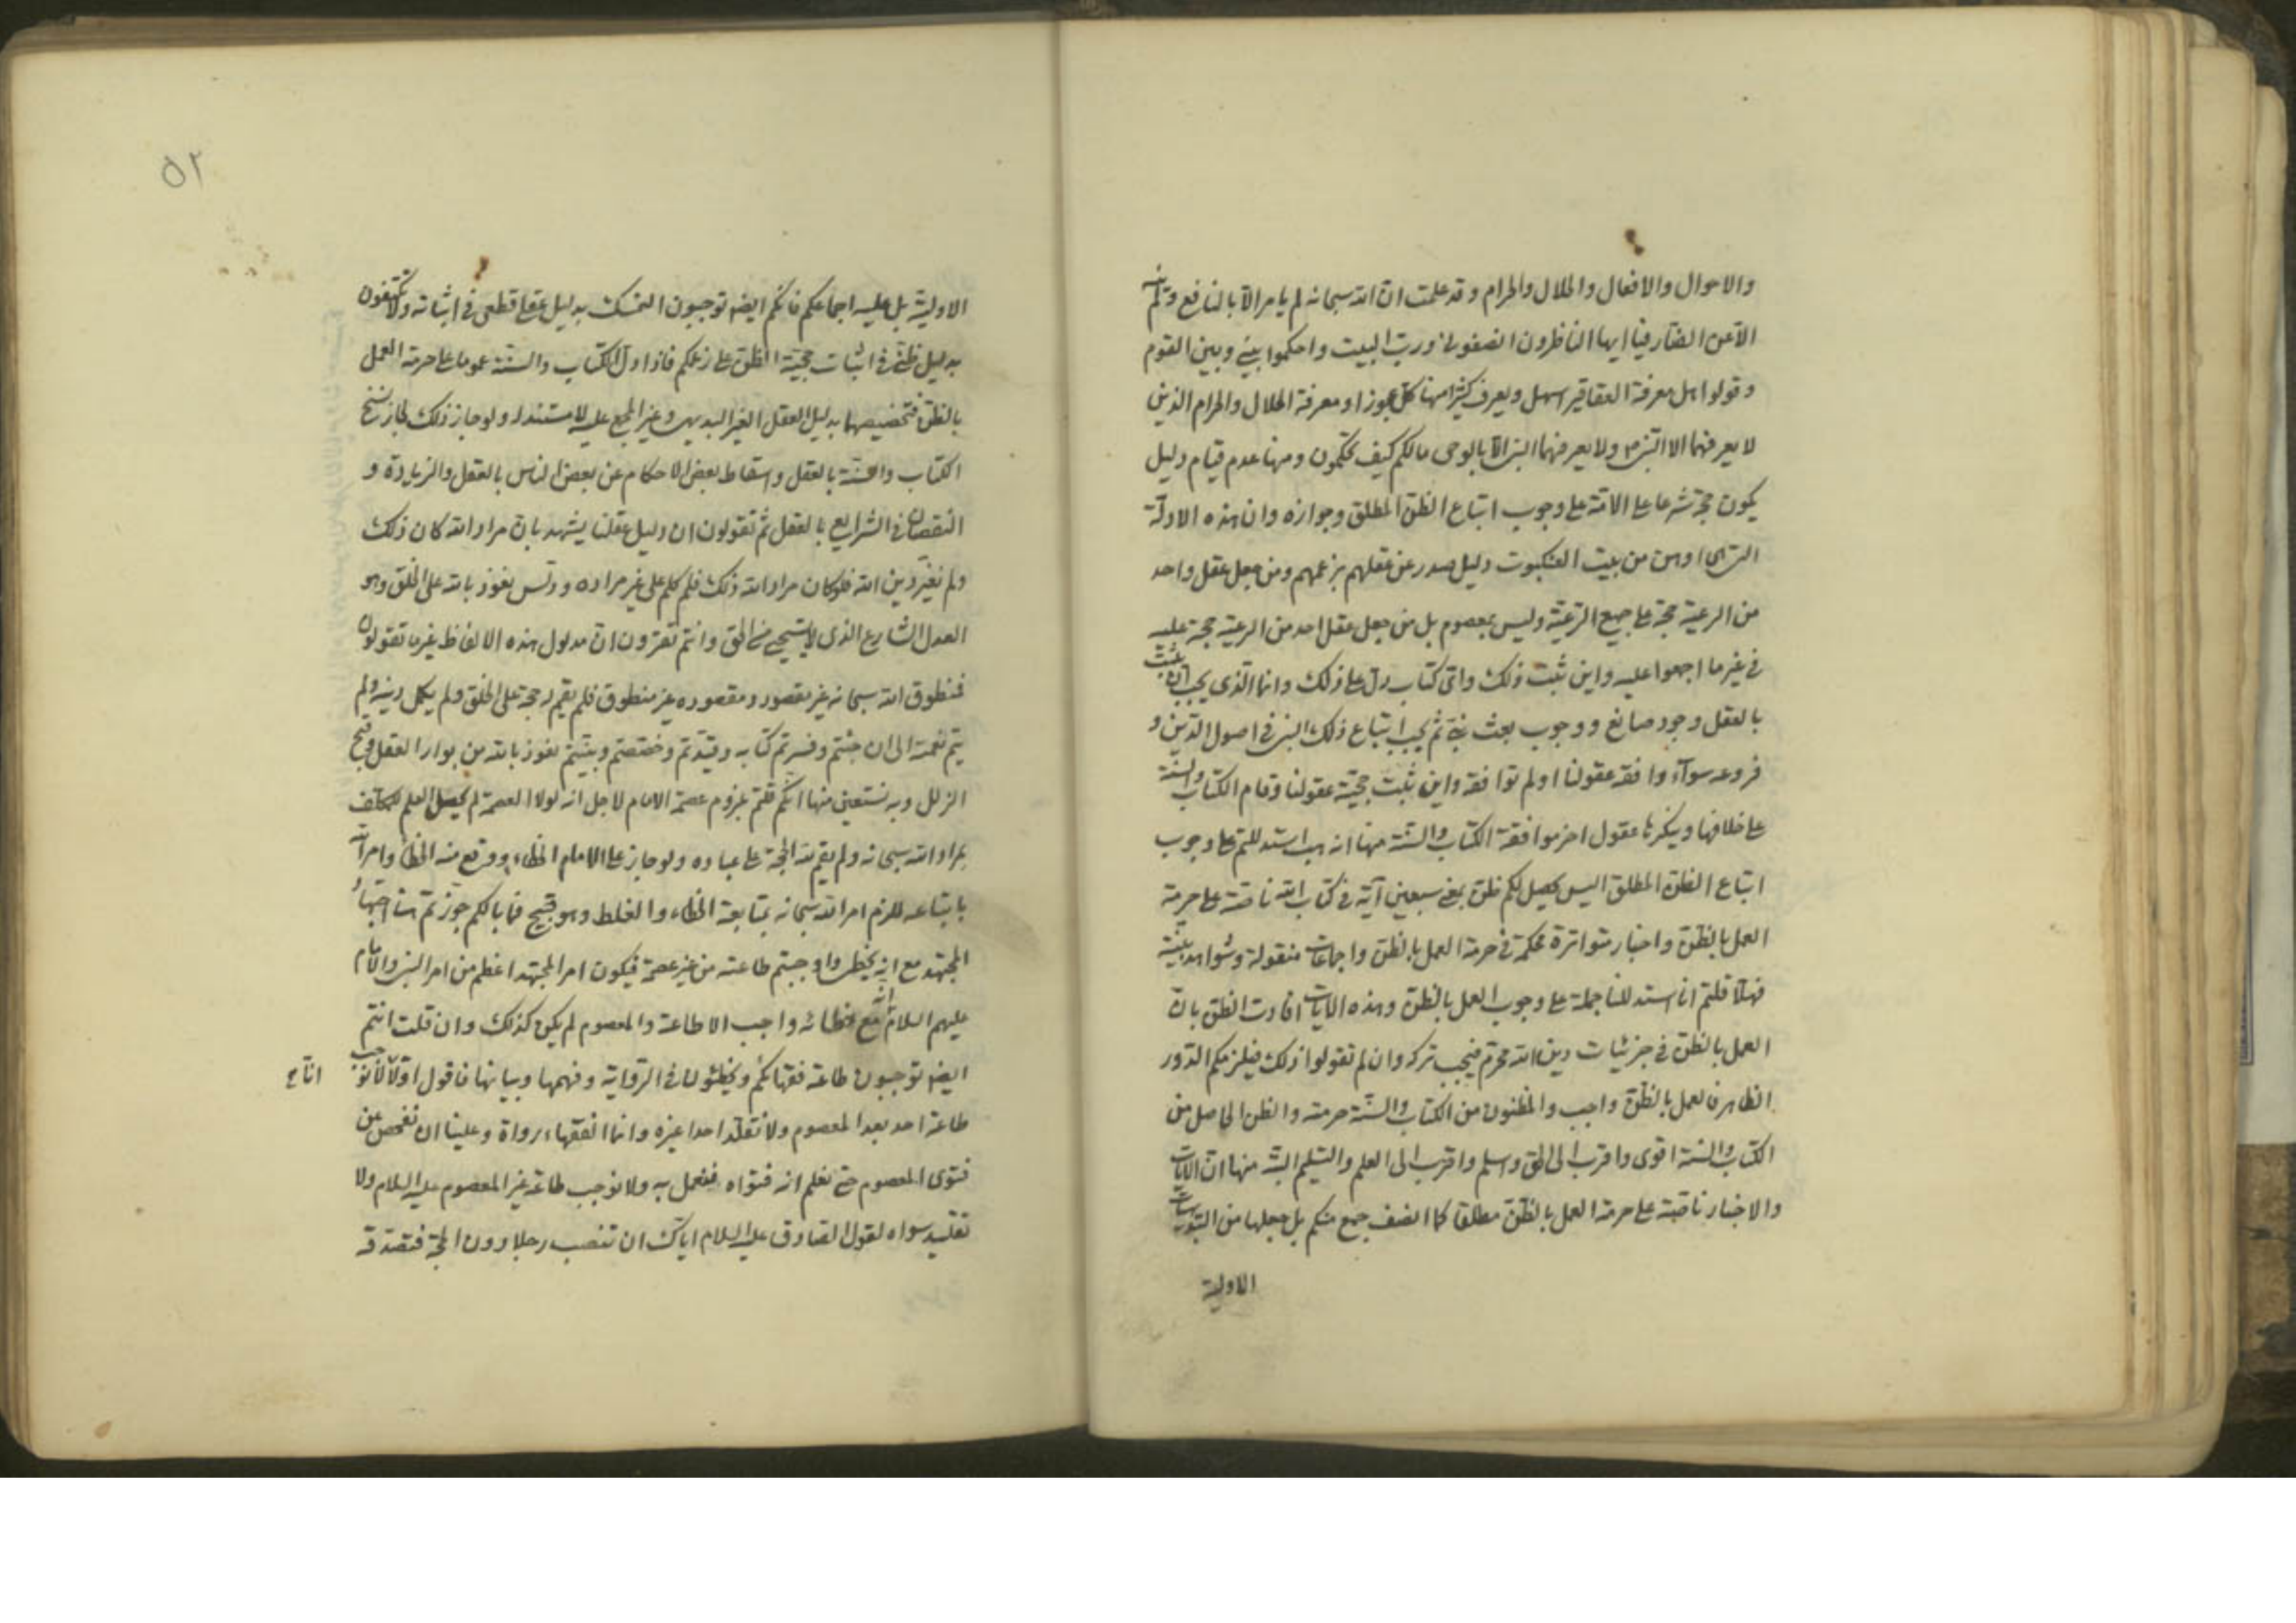 والاحوال والافعال والحلال والحرام وقد علمت ان الله سبحانه لم يامر الا بالنافع ولم ينه
الا عن الضار فيا ايها الناظرون انصفوني ورب البيت واحكموا بيني وبين القوم
وقولوا هل معرفة العقاقير اسهل ويعرف كثيرا منها كل عجوز او معرفة الحلال والحرام الذين
لا يعرفهما الا النبي ص ولا يعرفهما النبي الا بالوحي مالكم كيف تحكمون ومنها عدم قيام دليل
يكون حجة شرعا على الامة على وجوب اتباع الظن المطلق وجوازه وان هذه الادلة
التي هي اوهن من بيت العنكبوت دليل صدر عن عقلهم بزعمهم ومن جعل عقل واحد
من الرعية حجة على جميع الرعية وليس بمعصوم بل من جعل عقل احد من الرعية حجة عليه
في غير ما اجمعوا عليه واين ثبت ذلك واي كتاب دل على ذلك وانما الذي يجب ان يثبت
بالعقل وجود صانع ووجوب بعث نبي ثم يجب اتباع ذلك النبي في اصول الدين و
فروعه سواء وافقه عقولنا او لم توافقه واين ثبت حجية عقولنا وقام الكتاب والسنة
على خلافها وينكرها عقول اخر موافقة الكتاب والسنة منها انه هب استدللتم على وجوب
اتباع الظن المطلق اليس يحصل لكم ظن بمعنى سبعين آية في كتاب الله ناصة على حرمة
العمل بالظن واخبار متواترة محكمة في حرمة العمل بالظن واجماعات منقولة وشواهد بينة
فهلا قلتم انا استدللنا جملة على وجوب العمل بالظن وهذه الايات افادت الظن بان
العمل بالظن في جزئيات دين الله محرم فيجب تركه وان لم تقولوا ذلك فيلزمكم الدور
الظاهر فالعمل بالظن واجب والمظنون من الكتاب والسنة حرمته والظن الحاصل من
الكتاب والسنة اقوى واقرب الى الحق واسلم واقرب الى العلم والتسليم البتة منها ان الايات
والاخبار ناصة على حرمة العمل بالظن مطلقا كما انصف جمع منكم بل جعلها من
الاولية
٥٢
الاولية بل عليه اجماعكم فانكم ايضا توجبون التمسك بدليل عقلي قطعي في اثباته ولا تكتفون
بدليل ظني في اثبات حجية الظن على زعمكم فاذا دل الكتاب والسنة عموما على حرمة العمل
بالظن فتخصيصها بدليل العقل الغير البديهي وغير المجمع عليه لا مستند له ولو جاز ذلك لجاز نسخ
الكتاب والسنة بالعقل واسقاط بعض الاحكام عن بعض الناس بالعقل والزيادة و
النقصان في الشرايع بالعقل ثم تقولون ان دليل عقلنا يشهد بان مراد الله كان ذلك
ولم نغير دين الله فلو كان مراد الله ذلك فلم كلم على غير مراده ودلس نعوذ بالله على الخلق وهو
العدل الشارع الذي لا يستحيي من الحق وانتم تقرون ان مدلول هذه الالفاظ غير ما تقولون
فمنطوق الله سبحانه غير مقصود ومقصوده غير منطوق فلم يقم له حجة على الخلق ولم يكمل دينه ولم
يتم نعمته الى ان جئتم وفسرتم كتابه وقيدتم وخصصتم وبينتم نعوذ بالله من بوار العقل وقبح
الزلل وبه نستعين منها انكم قلتم بلزوم عصمة الامام لاجل انه لولا العصمة لم يحصل العلم للمكلف
بمراد الله سبحانه ولم يقم لله الحجة على عباده ولو جاز على الامام الخطاء ووقع منه الخطأ وامر الله
باتباعه للزم امر الله سبحانه بمتابعة الخطاء والغلط وهو قبيح فما بالكم جوزتم هنا اجتهاد
المجتهد مع انه يخطئ واوجبتم طاعته من غير عصمة فيكون امر المجتهد اعظم من امر النبي والامام
عليهم السلام مع خطائه واجب الاطاعة والمعصوم لم يكن كذلك وان قلت انتم
ايضا توجبون طاعة فقهائكم ويخطئون في الرواية وفهمها وبيانها فاقول اولا لا نوجب
انا ح
طاعة احد بعد المعصوم ولا نقلد احدا غيره وانما الفقهاء رواة وعلينا ان نفحص عن
فتوى المعصوم حتى نعلم انه فتواه فنعمل به ولا نوجب طاعة غير المعصوم عليه السلام ولا
تقليد سواه لقول الصادق عليه السلام اياك ان تنصب رجلا دون الحجة فتصدقه